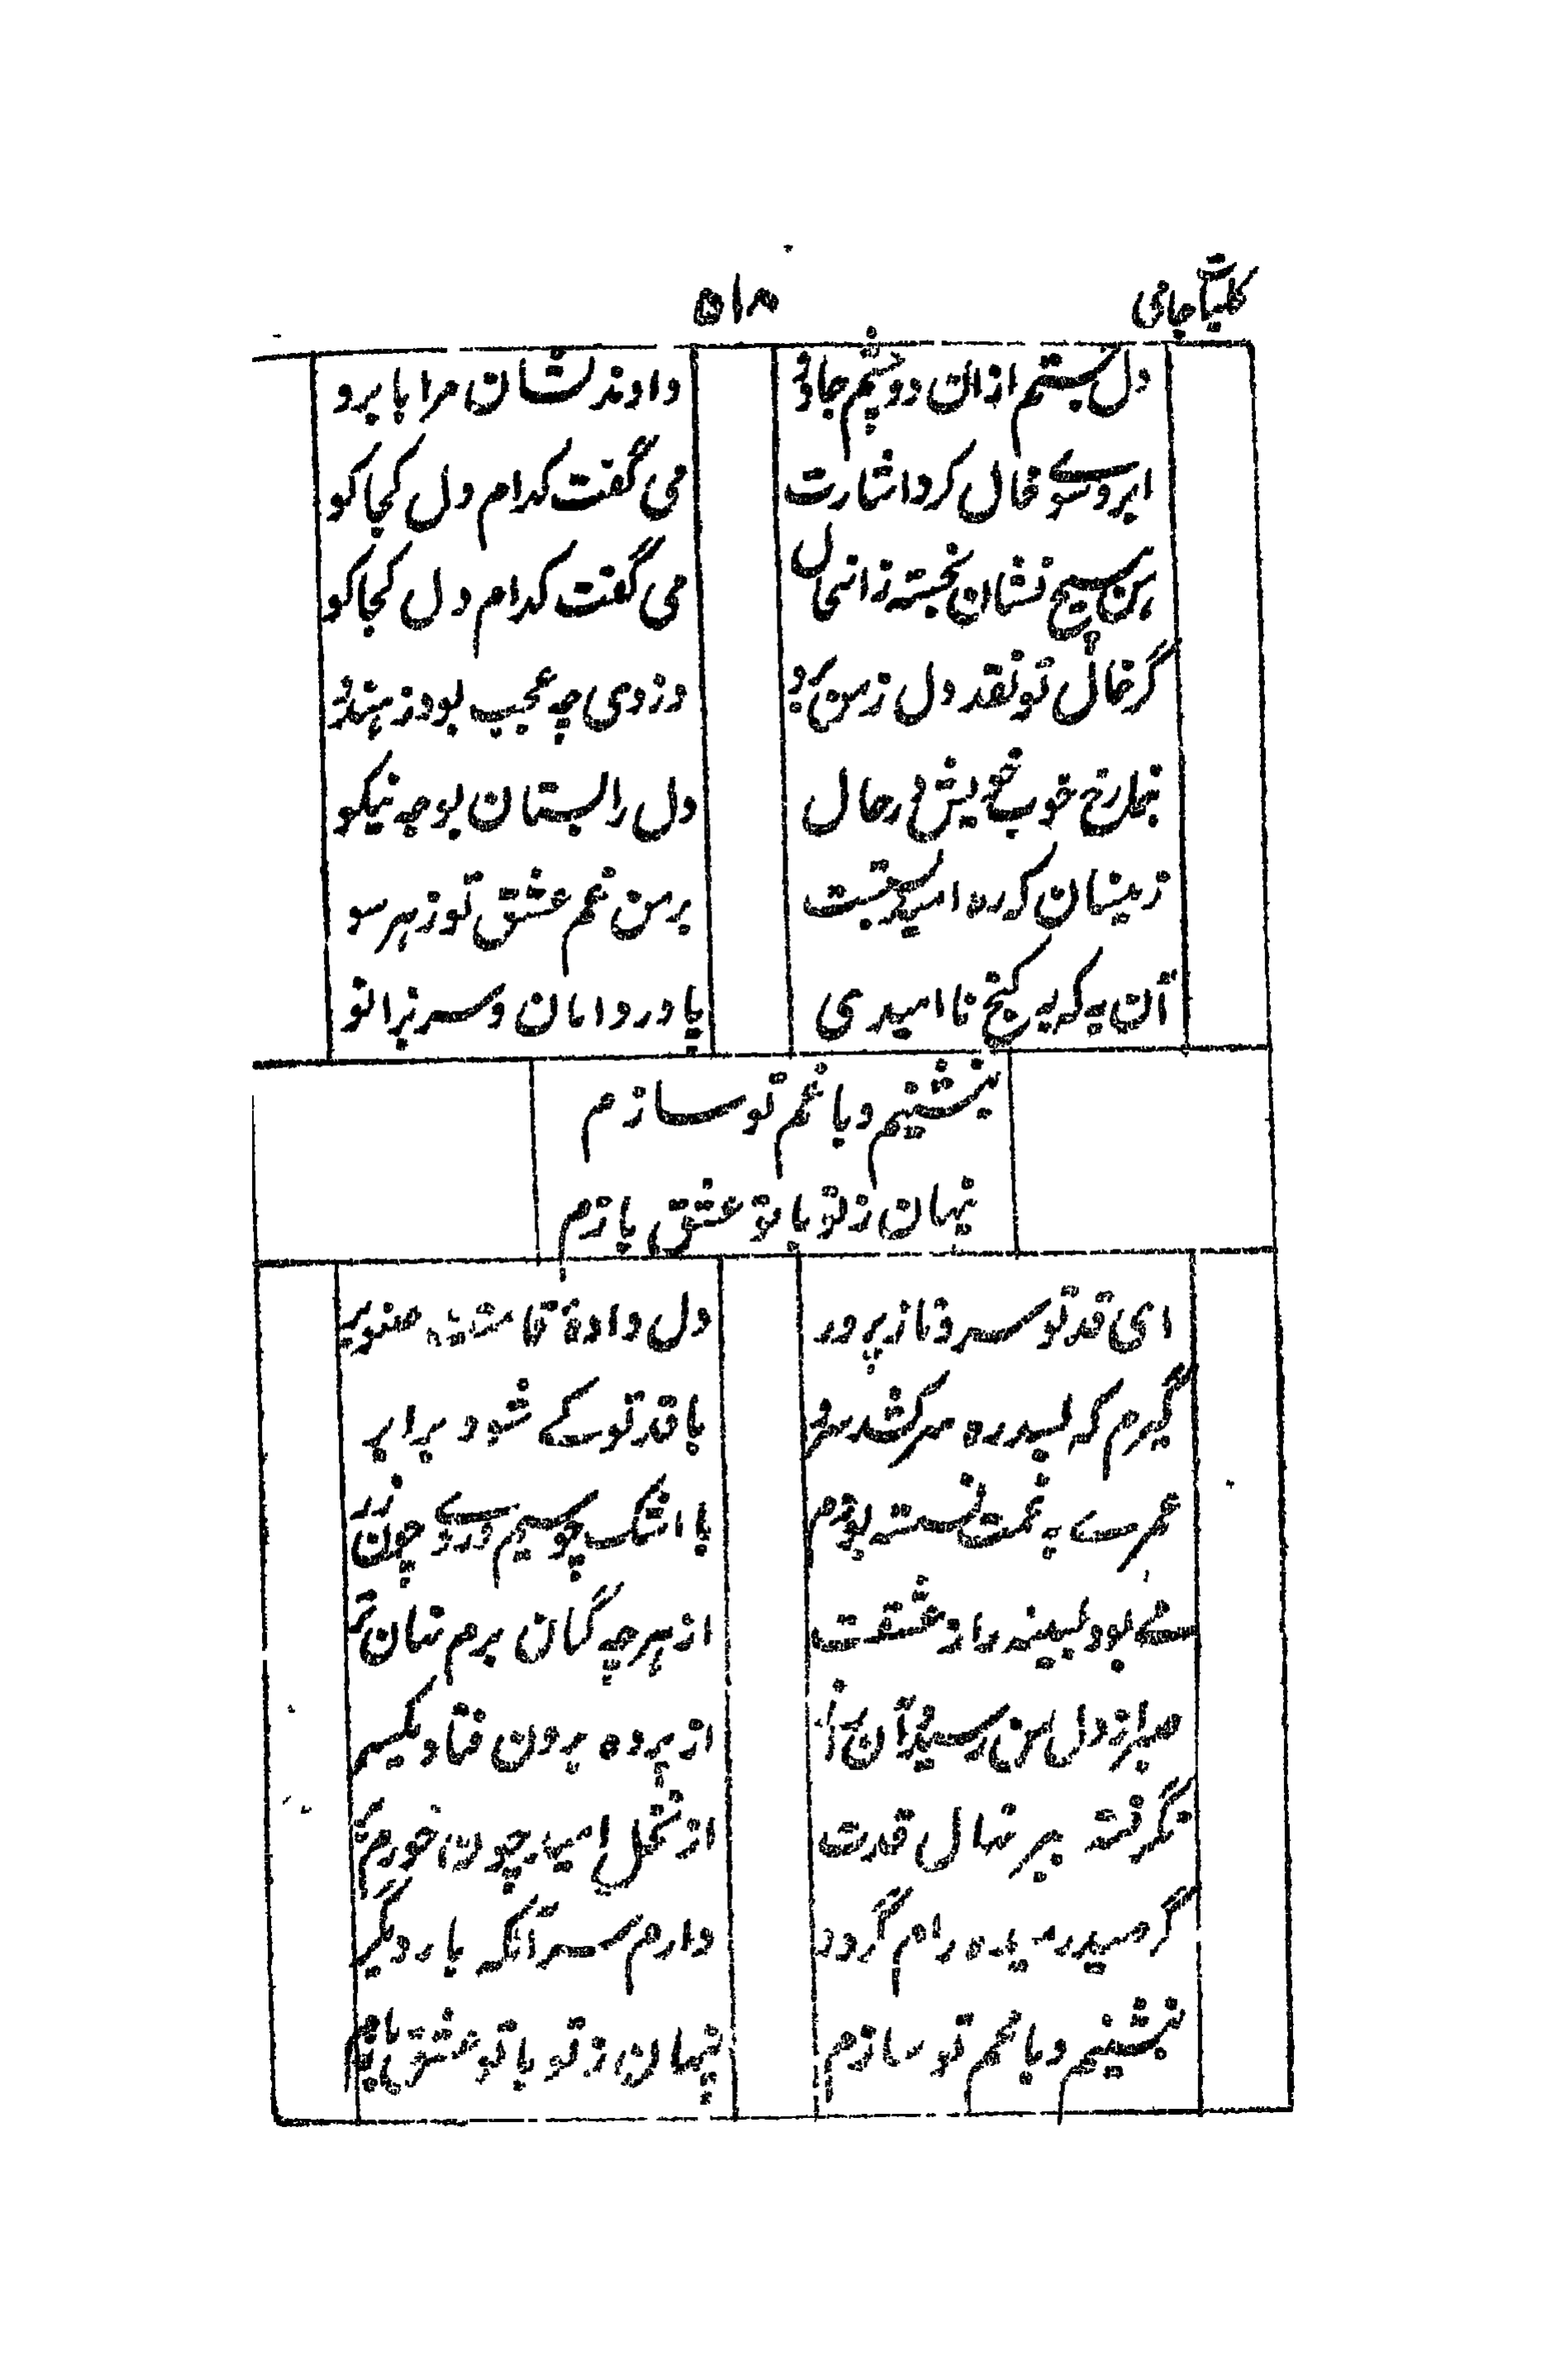 کلیات جامی
۵۱۸
دل جستم ازان دو چشم جادو
دادند نشان مرا بابرو
ابرو سوے خال کرد اشارت
می گفت کدام دل کجا کو
من هیچ نشان نجسته زانخال
می گفت کدام دل کجا کو
گر خال تو نقد دل ز من برد
دزدی چه عجب بود ز هندو
بنما رخ خوب خویش در حال
دل را بستان بوجه نیکو
زینسان که ره امید بست
بر من غم عشق تو ز هر سو
آن به که به کنج نا امیدی
پا در دامان و سر بزانو
بنشینم و با غم تو سازم
پنهان ز تو با تو عشق بازم
ای قد تو سرو ناز پرور
دل دادهٔ قامتت صنوبر
گیرم که بسدره سر کشد سرو
با قد تو کے شود برابر
عمرے به غمت نشسته بودم
با اشک چو سیم و روے چون زر
مے بود بسینه راز عشقت
از هرچه گمان برم نهان تر
صبر از دل من رمید و آن راز
از پرده برون فتاد یکسر
نگرفته ببر نهال قدت
از نخل امید چون خورم بر
گر صید رمیده رام گردد
دارم سر آنکه بار دیگر
بنشینم و با غم تو سازم
پنهان ز تو با تو عشق بازم